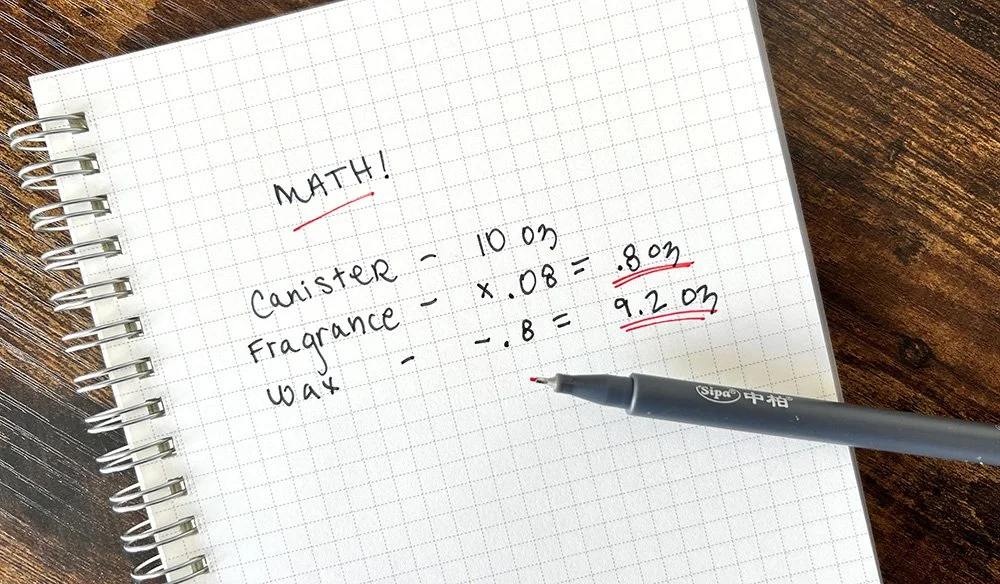 MATH!
Canister - 10 oz
Fragrance - x .08 = .8 oz
Wax - - .8 = 9.2 oz
Sipa® 中柏